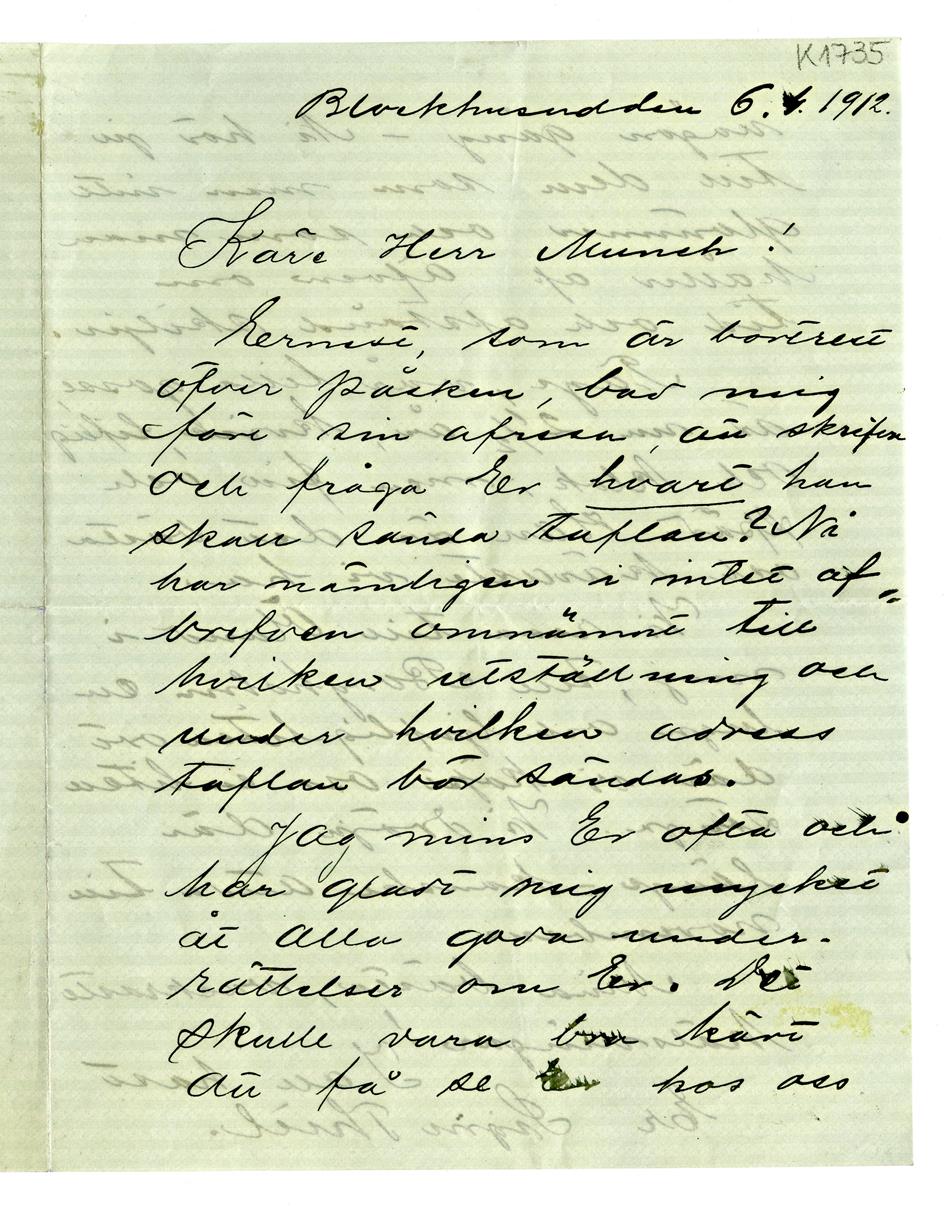 K1735
Blockhusudden 6. 4. 1912.
Käre Herr Munch!
Ernest, som är bortrest
öfver påsken, bad mig
före sin afresa, att skrifva
och fråga Er hvart han
skall sända taflan? Ni
har nämligen i intet af
brefven omnämnt till
hvilken utställning och
under hvilken adress
taflan bör sändas.
Jag mins Er ofta och
har gladt mig mycket
åt alla goda under-
rättelser om Er. Det
skulle vara bra kärt
att få se Er hos oss